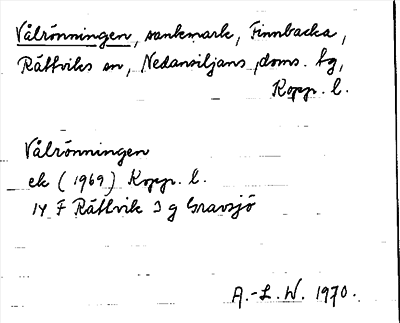 Vålrönningen, sankmark, Finnbacka,
Rättviks sn, Nedansiljans doms. hg,
Kopp. l.
Vålrönningen
ek (1969) Kopp. l.
14 F Rättvik 3 g Gravsjö
A.-L. W. 1970.